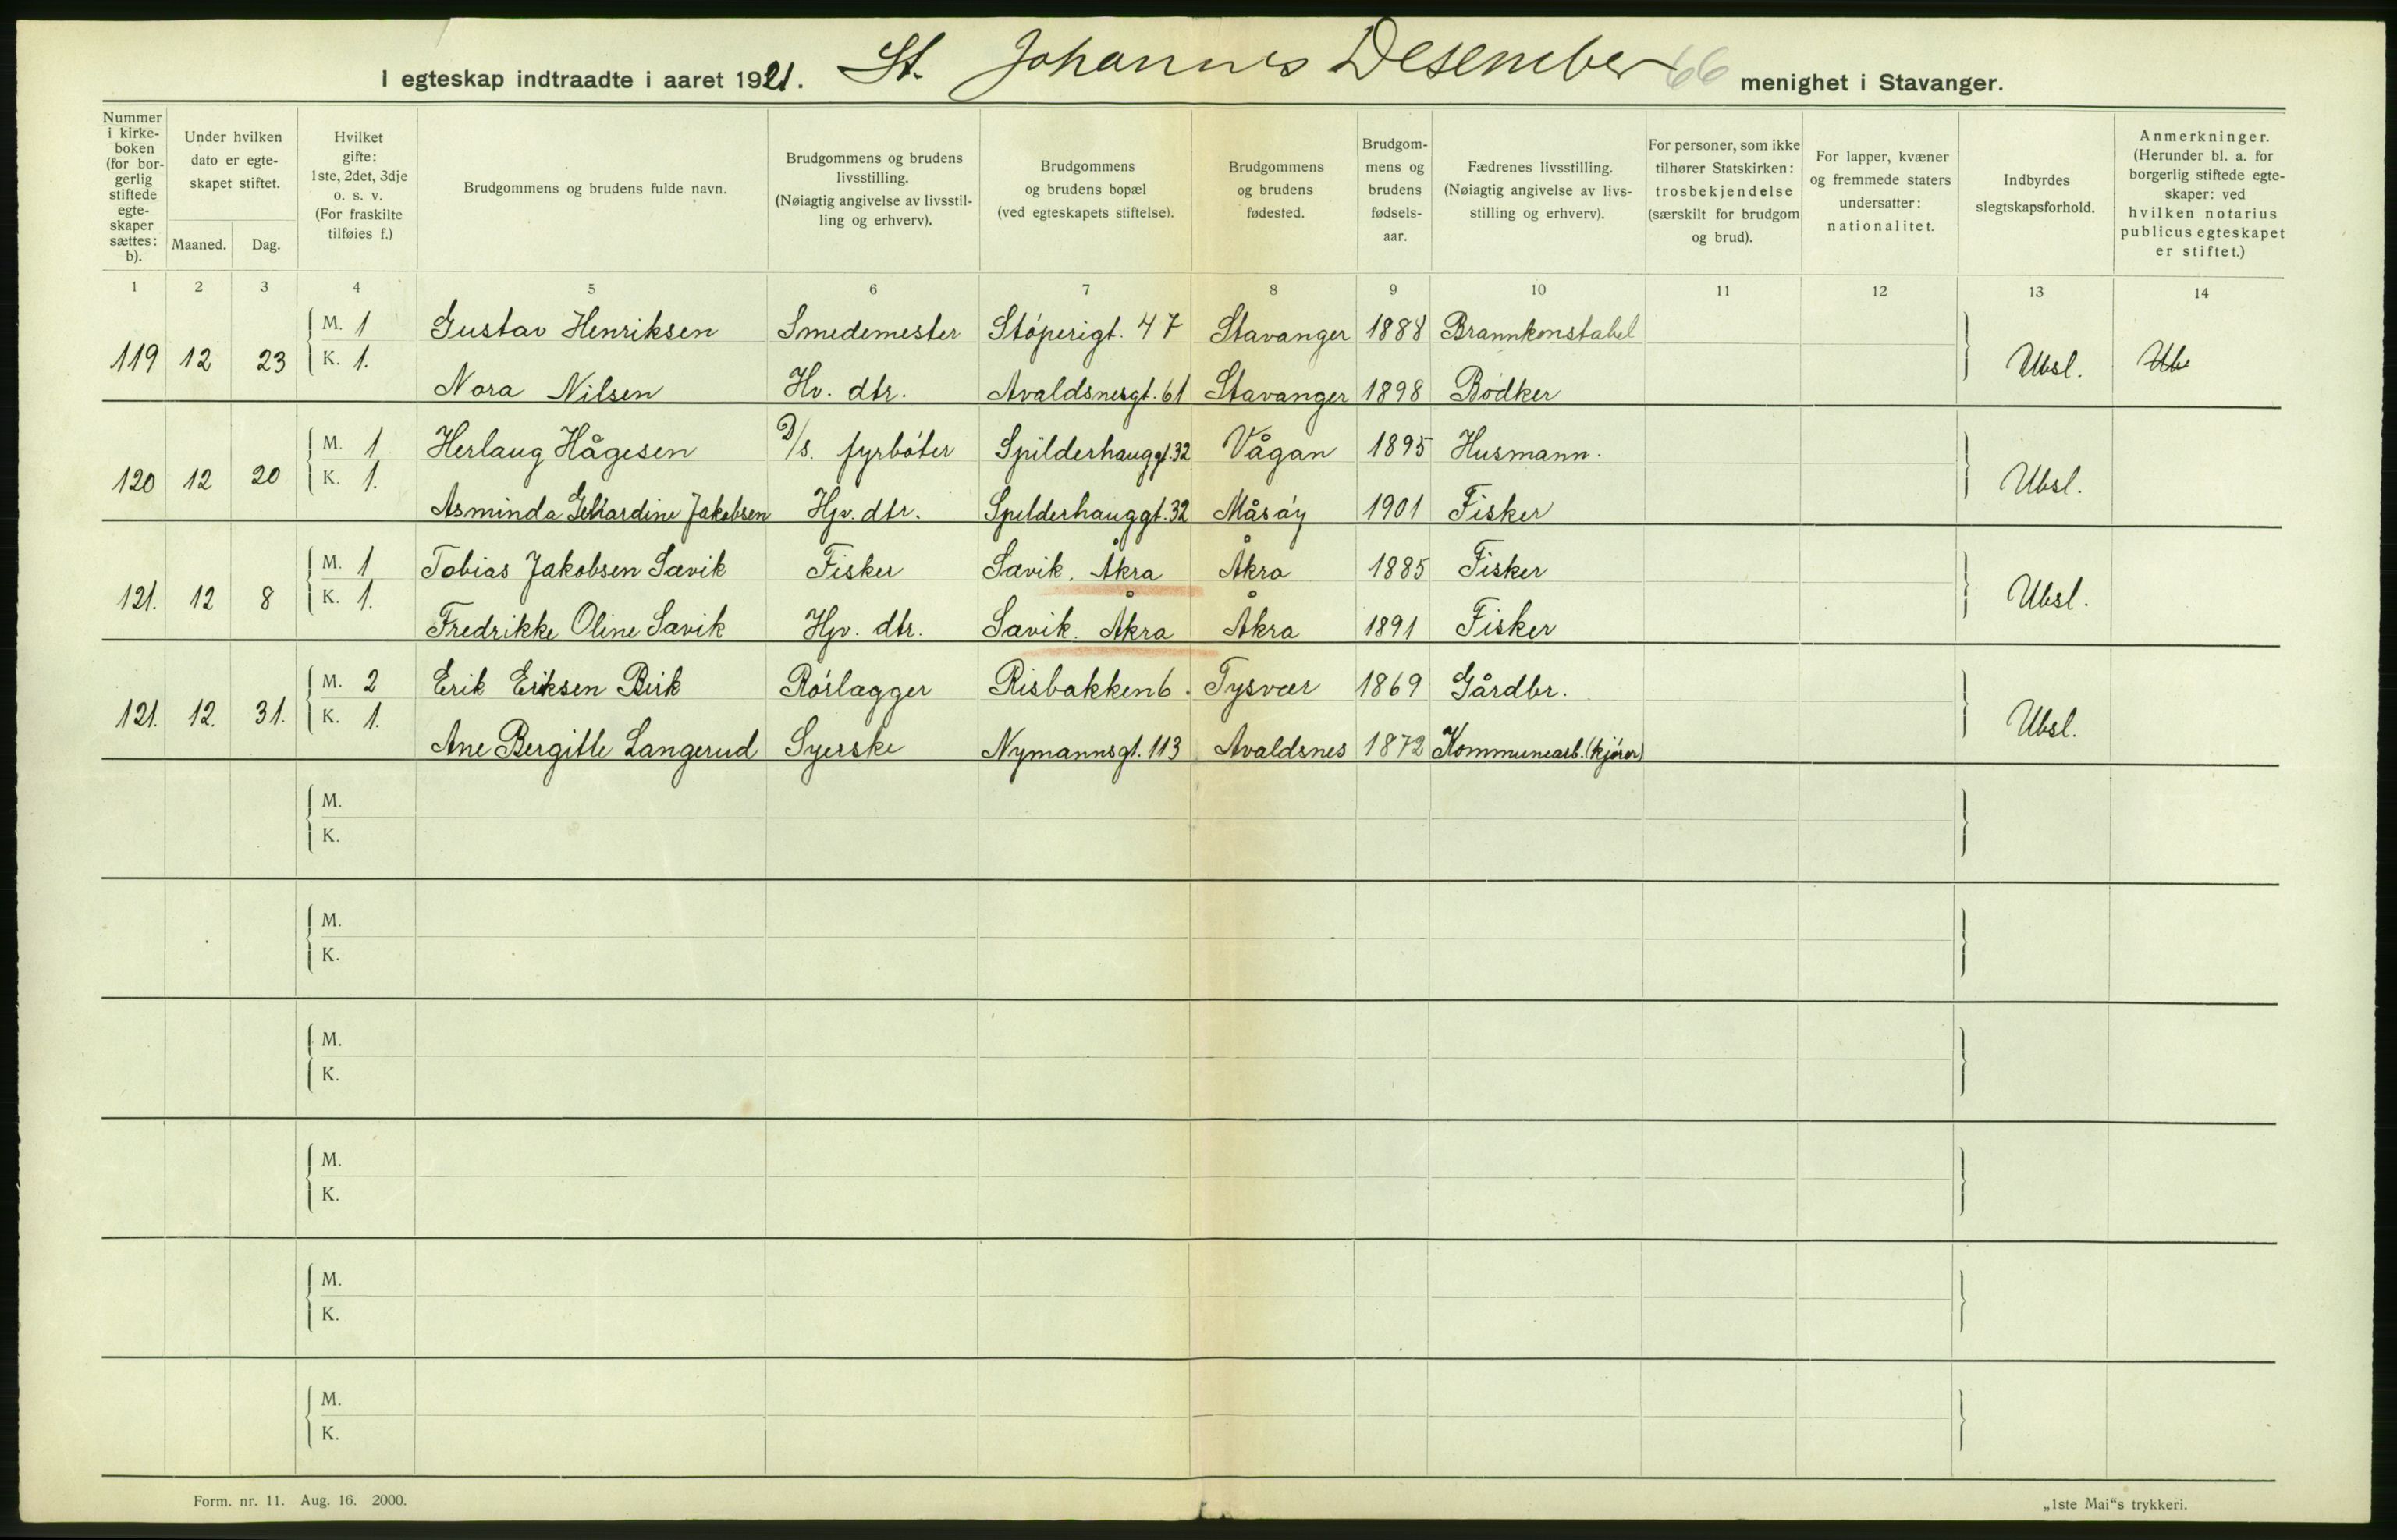 I egteskap indtraadte i aaret 1921. St. Johannes Desember 66 menighet i Stavanger.
Nummer i kirkeboken (for borgerlig stiftede egteskaper sættes: b).
Under hvilken dato er egteskapet stiftet.
Maaned. Dag.
Hvilket gifte: 1ste, 2det, 3dje o. s. v. (For fraskilte tilføies f.)
Brudgommens og brudens fulde navn.
Brudgommens og brudens livsstilling. (Nøiagtig angivelse av livsstilling og erhverv).
Brudgommens og brudens bopæl (ved egteskapets stiftelse).
Brudgommens og brudens fødested.
Brudgommens og brudens fødselsaar.
Fædrenes livsstilling. (Nøiagtig angivelse av livsstilling og erhverv).
For personer, som ikke tilhører Statskirken: trosbekjendelse (særskilt for brudgom og brud).
For lapper, kvæner og fremmede staters undersatter: nationalitet.
Indbyrdes slegtskapsforhold.
Anmerkninger. (Herunder bl. a. for borgerlig stiftede egteskaper: ved hvilken notarius publicus egteskapet er stiftet.)
1 2 3 4 5 6 7 8 9 10 11 12 13 14
M. 1 Gustav Henriksen Smedemester Støperigt. 47 Stavanger 1888 Brannkonstabel
119 12 23 K. 1. Ubsl. Ub
Nora Nilsen Hv. dtr. Avaldsnesgt. 61 Stavanger 1898 Bødker
M. 1 Herlaug Hågesen D/s. fyrbøter Spilderhauggt. 32 Vågan 1895 Husmann.
120 12 20 K. 1. Ubsl.
Asminda Jakobsen Hjv. dtr. Spelderhauggt. 32 Måsøy 1901 Fisker
M. 1 Tobias Jakobsen Sævik Fisker Sævik. Åkra Åkra 1885 Fisker
121. 12 8 K. 1. Ubsl.
Fredrikke Oline Sævik Hjv. dtr. Sævik. Åkra Åkra 1891 Fisker
M. 2 Erik Eriksen Birk Rørlægger Risbakken 6. Tysvær 1869 Gårdbr.
121. 12. 31. K. 1. Ubsl.
Ane Bergitte Langerud Syerske Nymannsgt. 113 Avaldsnes 1872 Kommunearb. (kjører)
M.
K.
M.
K.
M.
K.
M.
K.
M.
K.
M.
K.
Form. nr. 11. Aug. 16. 2000. „1ste Mai“s trykkeri.